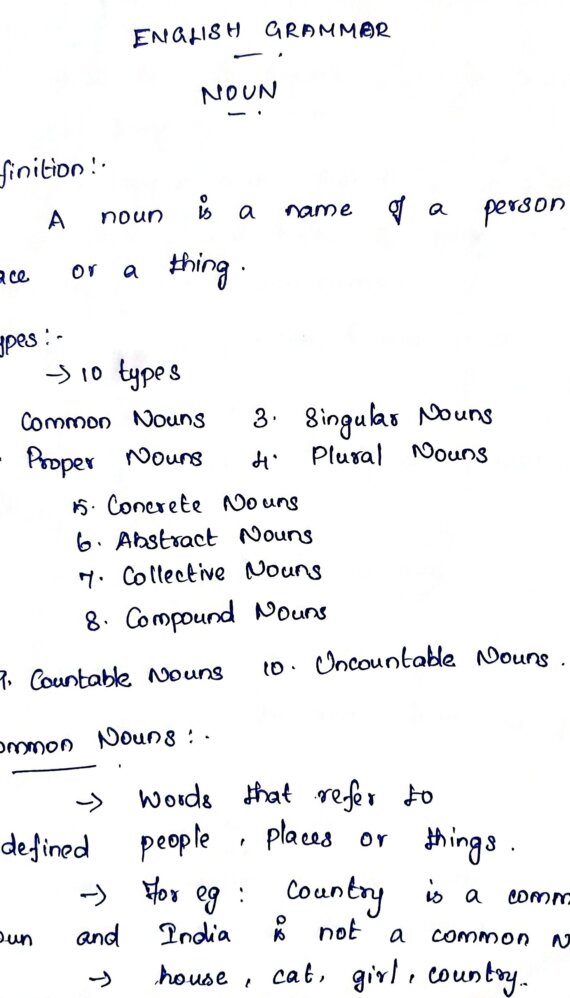 ENGLISH GRAMMAR
NOUN
finition :-
A noun is a name of a person
ace or a thing.
ypes :-
→ 10 types
Common Nouns 3. Singular Nouns
. Proper Nouns 4. Plural Nouns
5. Concrete Nouns
6. Abstract Nouns
7. Collective Nouns
8. Compound Nouns
9. Countable Nouns 10. Uncountable Nouns.
ommon Nouns :-
→ Words that refer to
defined people, places or things.
→ For eg : Country is a comm
oun and India is not a common N
→ house, cat, girl, country.